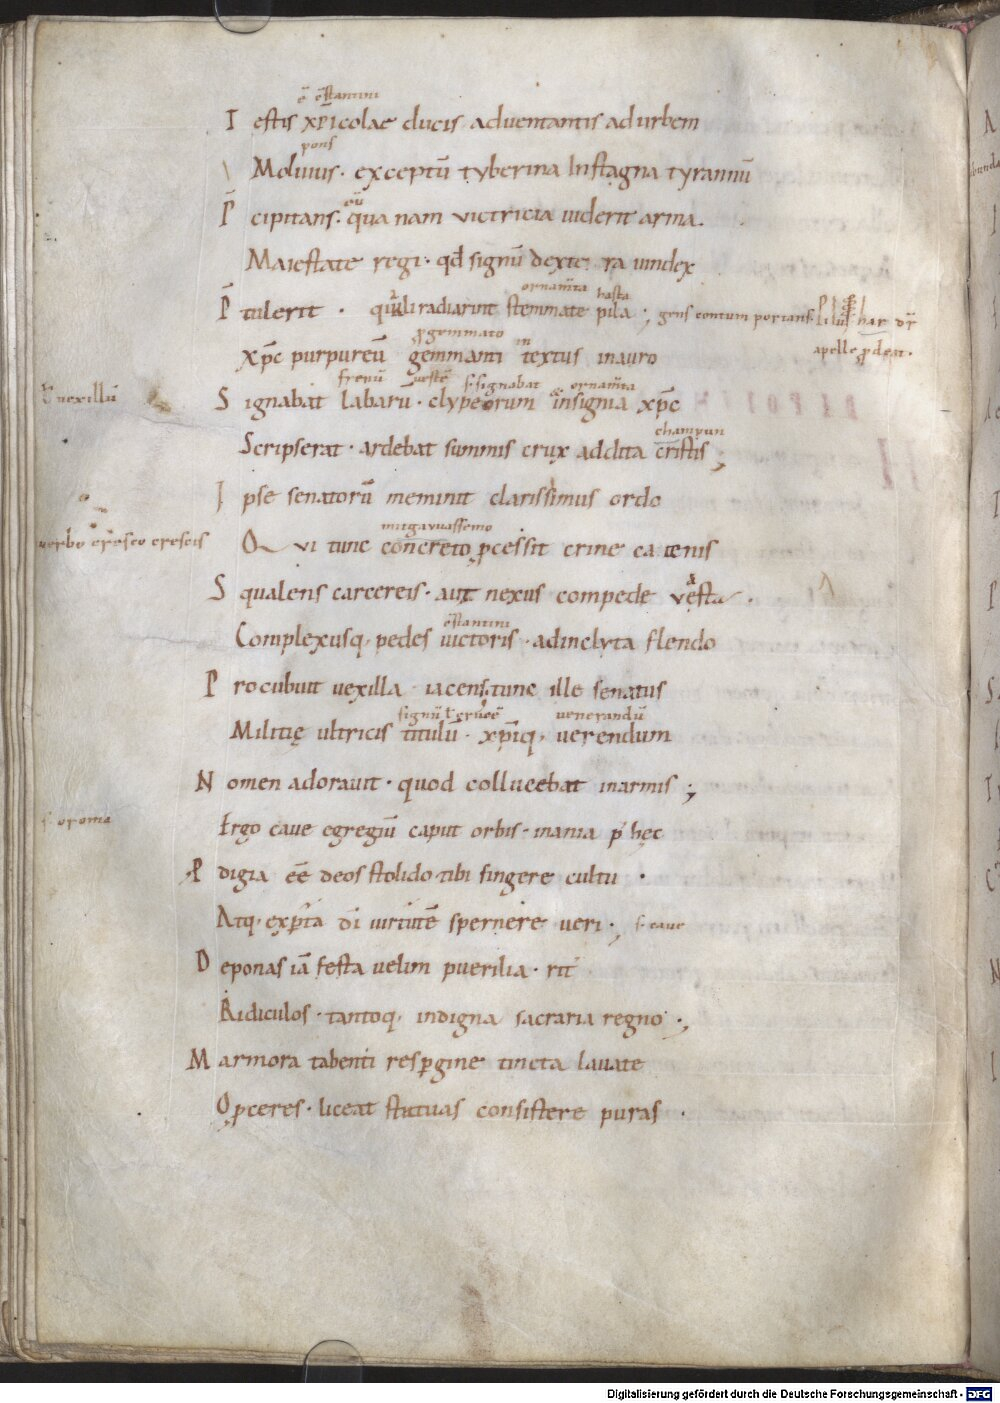 ē cōstantini
I estis xp̄icolae ducis· adventantis ad urbem
pons
Mulvius· exceptū tyberina In stagna tyrannū
P̄ cipitans· qua nam victricia viderit arma.
Maiestate regi· qđ signū dextera vindex
ornam̄ta hasta
P̄ tulerit · quali radiarint stemmate pila ; gens contum portans
gemmato in
apelle
xp̄c purpureū gemmanti textus in auro
frenū signabat ornam̄ta
vexillū
S ignabat labarū· clypeorum insignia xp̄c
Scripserat· ardebat summis crux addita cristis ;
I pse senatorū meminit clarissimus ordo
verbo cresco crescis
Qvi tunc concreto ꝓcessit crine catenis
S qualens carcereis· aut nexus compede vasta ·
cōstantini
Complexusq· pedes victoris· ad inclyta flendo
P rocubuit vexilla iacens· tunc ille senatus
signū venerandū
Militię ultricis titulū· xp̄iq· verendum
N omen adoravit· quod collucebat in armis ;
s· o roma
Ergo cave egregiū caput orbis· inania p̄ hęc
P digia eē deos stolido tibi fingere cultu ·
Atq· exp̄ta dī virtutē spernere veri · s· cave
D eponas iā festa velim puerilia· rit'
Ridiculos· tantoq· indigna sacraria regno ·;
M armora tabenti respꝑgine tincta lavate
O ꝓceres· liceat statuas consistere puras ·
Digitalisierung gefördert durch die Deutsche Forschungsgemeinschaft - DFG